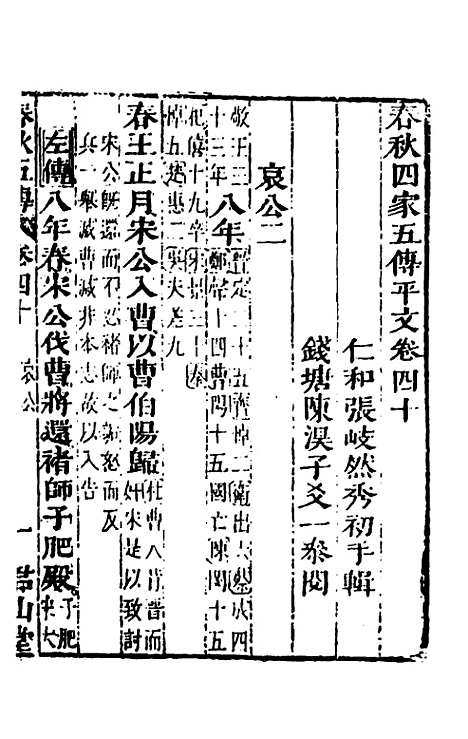 春秋四家五傳平文卷四十
仁和張岐然秀初手輯
錢塘陳淏子爻一叅閱
哀公二
敬王三十三年八年晉定二十五齊悼二衛出六蔡成四鄭聲十四曹陽十五國亡陳閔十五
杞僖十九卒宋景三十秦悼五楚惠二吳夫差九
春王正月宋公入曹以曹伯陽歸杜曹人背晉而奸宋是以致討
宋公旣還而不忍褚師之詬怒而反兵一舉滅曹滅非本志故以入告
左傳八年春宋公伐曹將還褚師子肥殿子肥宋大
春秋五傳 卷四十 哀公 一 君山堂